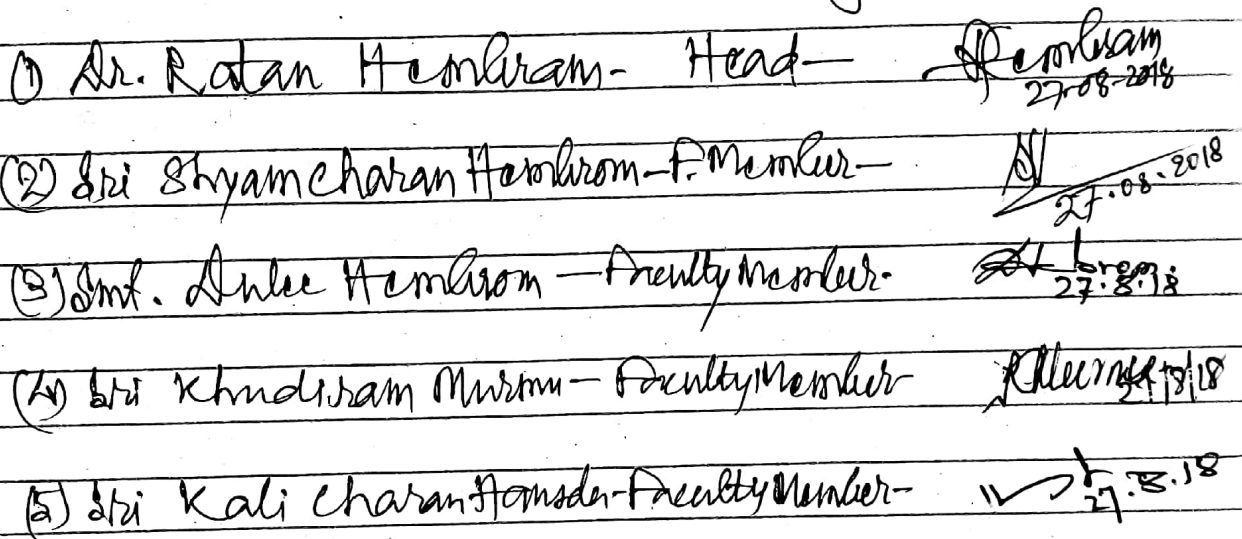 (1) Dr. Ratan Hembram - Head - Hembram 27-08-2018
(2) Sri Shyamcharan Hembrom - F. Member - 27.08.2018
(3) Smt. Dulee Hembrom - Faculty Member - 27.8.18
(4) Sri Khudiram Murmu - Faculty Member - KMurmu 27/8/18
(5) Sri Kali Charan Hansda - Faculty Member - 27.8.18